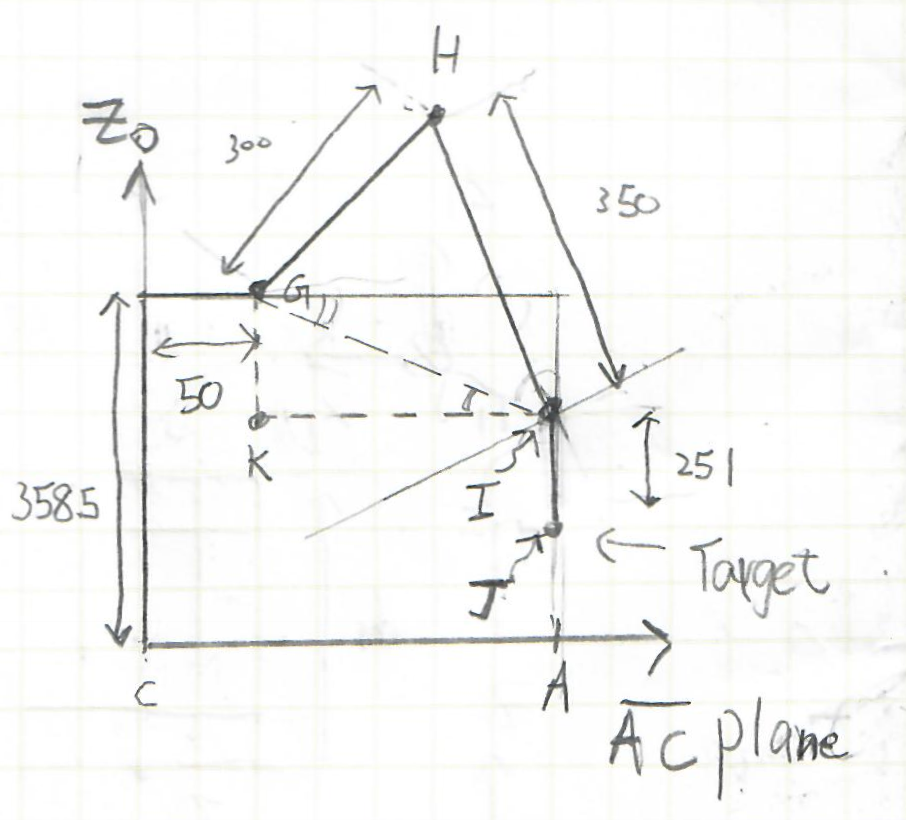 H
Z₀
300
350
G
50
K
I
251
3585
J
Target
C
A
AC plane